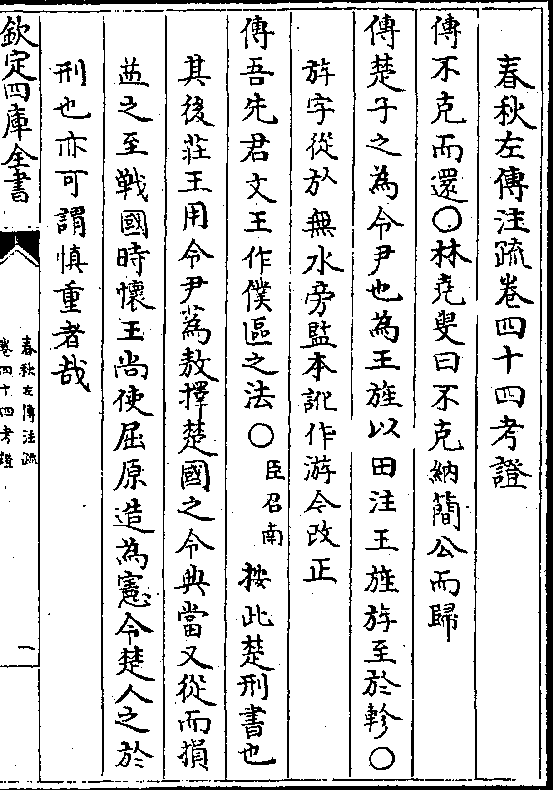 春秋左傳注疏卷四十四考證
傳不克而還○林堯叟曰不克納簡公而歸
傳楚子之為令尹也為王旌以田注王旌斿至於軫○
斿字從㫃無水旁監本訛作游今改正
傳吾先君文王作僕區之法○臣召南按此楚刑書也
其後莊王用令尹蒍敖擇楚國之令典當又從而損
益之至戰國時懷王尚使屈原造為憲令楚人之於
刑也亦可謂慎重者哉
欽定四庫全書
春秋左傳注疏
卷四十四考證
一